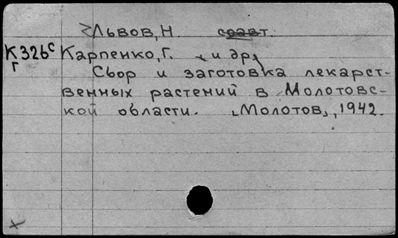 Львов, Н. соавт.
К326с Карпенко, Г. и др.
Г Сбор и заготовка лекарст-
венных растений в Молотовс-
кой области. [Молотов], 1942.